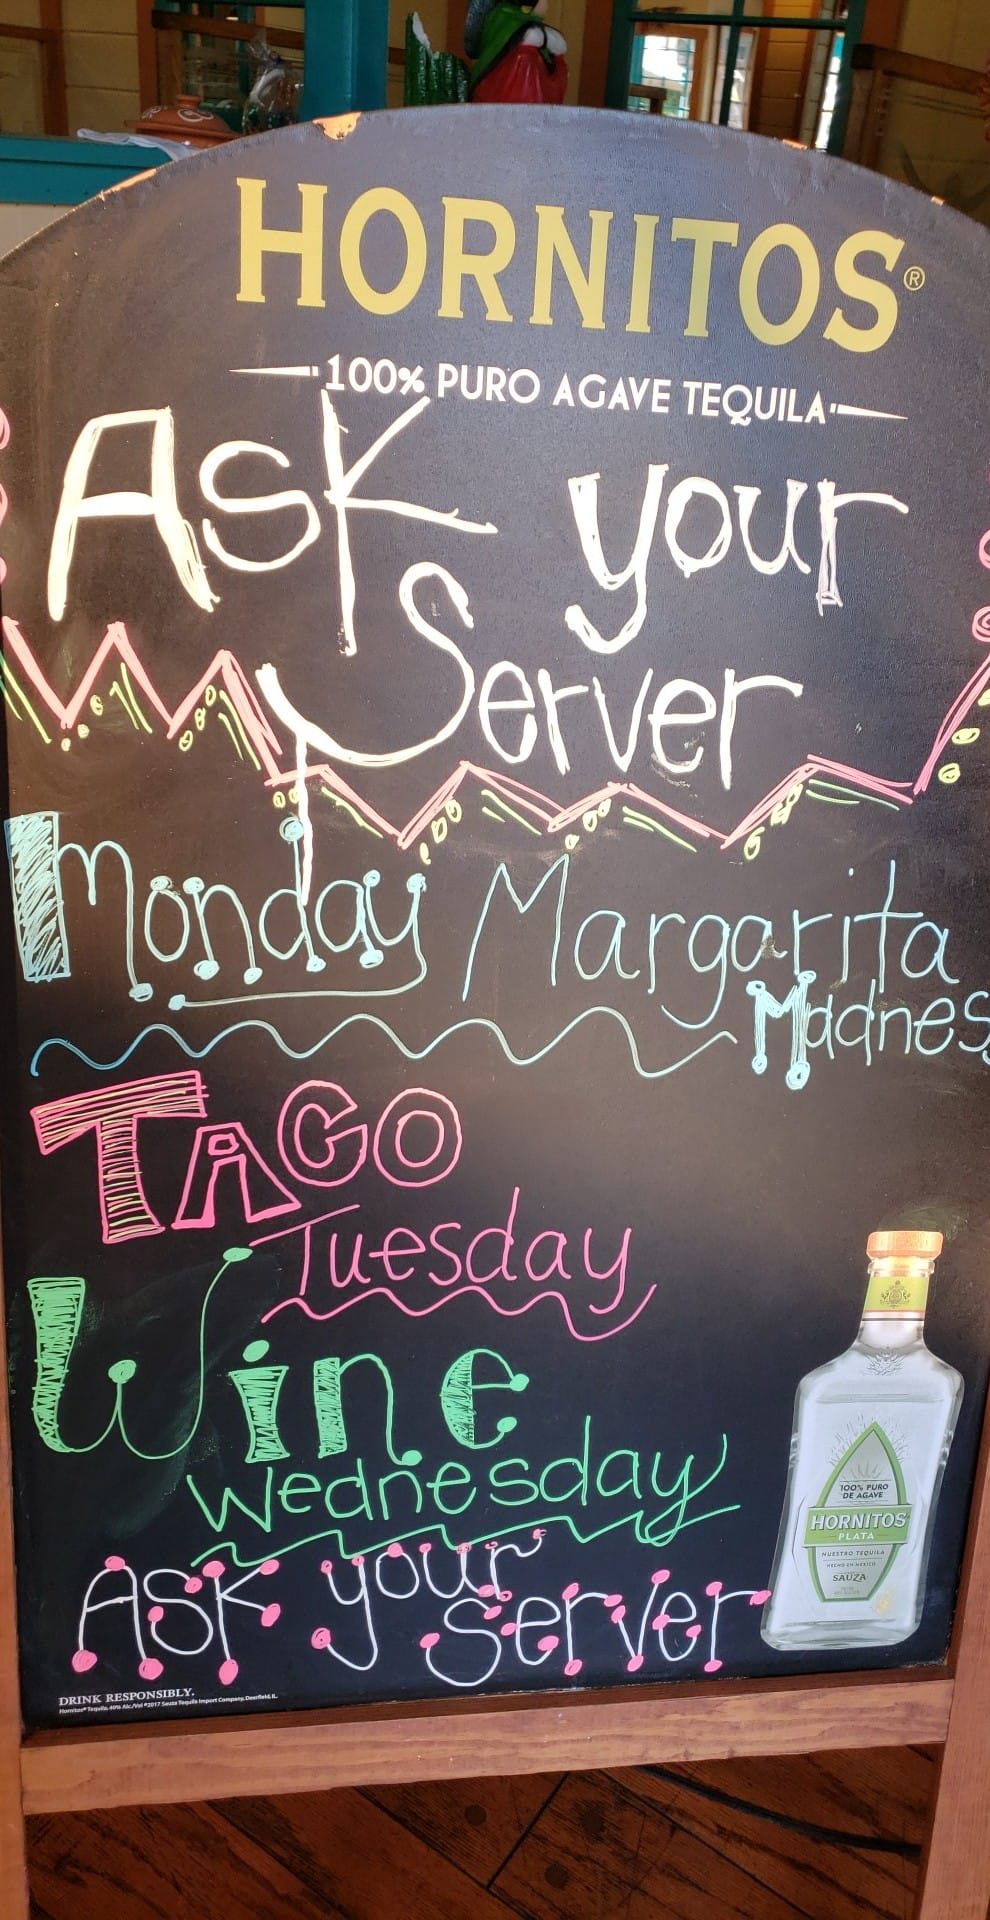 HORNITOS®
100% PURO AGAVE TEQUILA
Ask your
Server
Monday Margarita
Madness
TACO
Tuesday
Wine
Wednesday
Ask your
server
100% PURO
DE AGAVE
HORNITOS
PLATA
NUESTRO TEQUILA
HECHO EN MEXICO
SAUZA
DRINK RESPONSIBLY.
Hornitos® Tequila, 40% Alc./Vol ©2017 Sauza Tequila Import Company, Deerfield, IL.